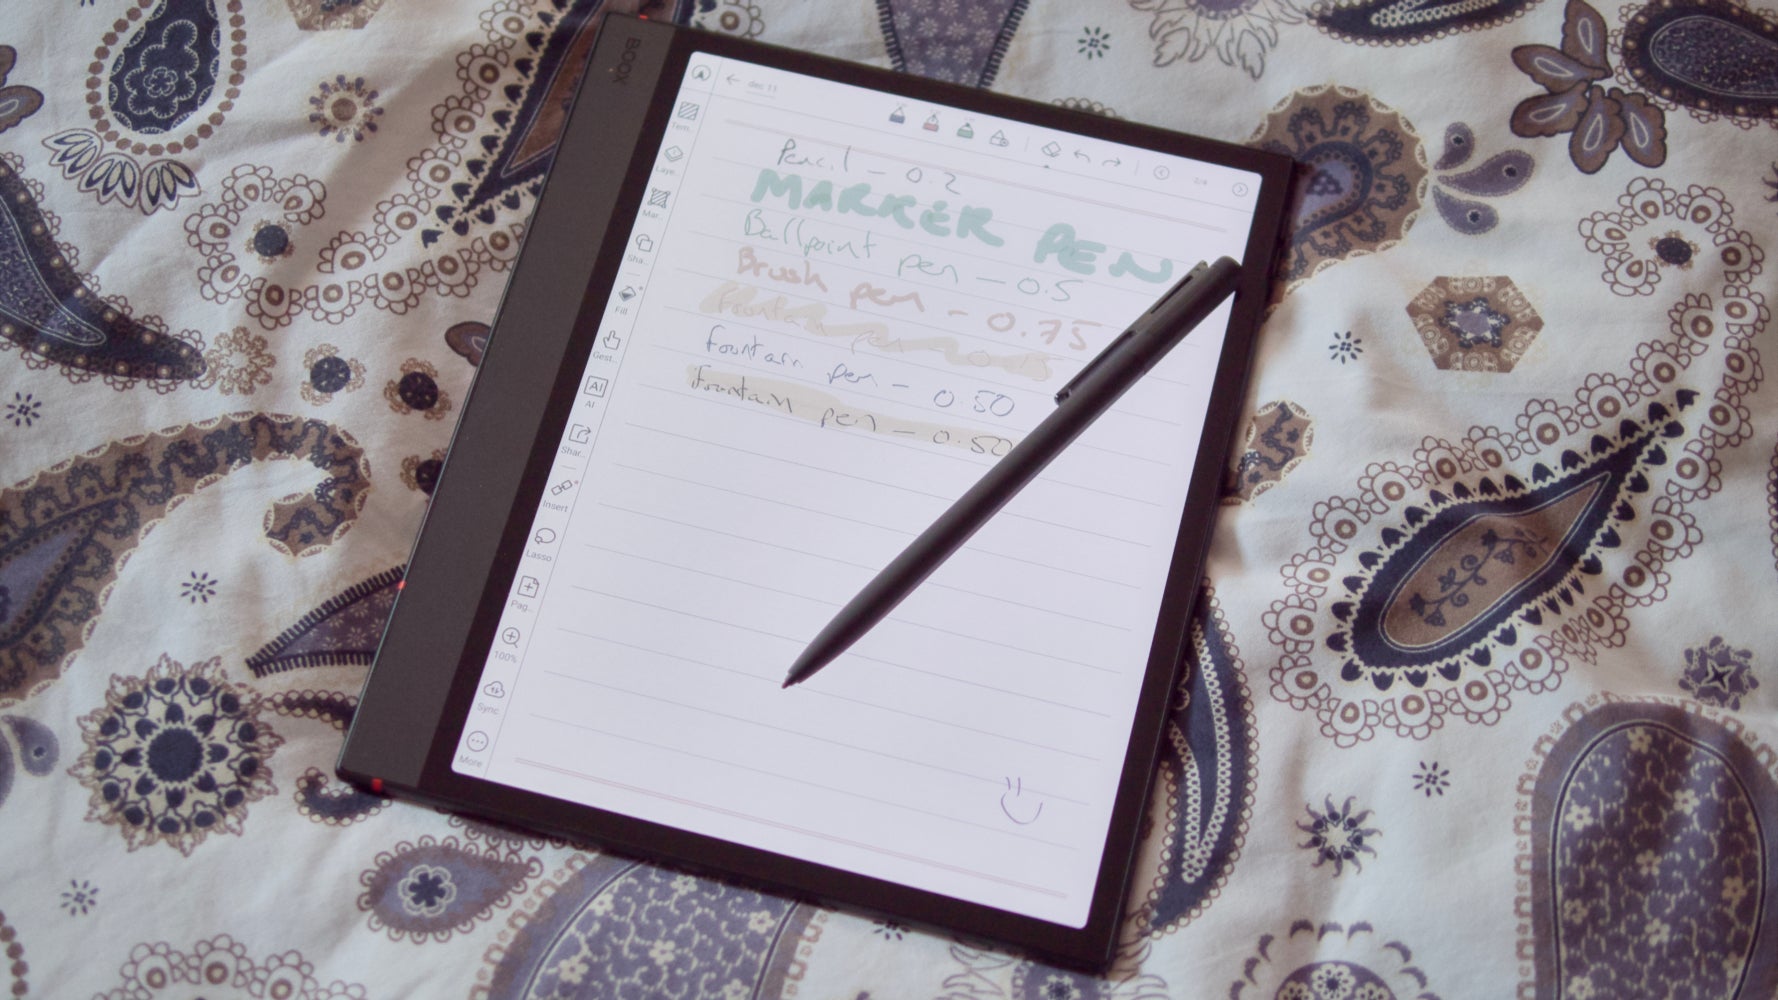 BOOX
dec 11
2/4
Tem..
Laye..
Mar..
Sha..
Fill
Gest..
AI
AI
Shar..
Insert
Lasso
Pag..
100%
Sync
More
Pencil - 0.2
MARKER PEN
Ballpoint pen - 0.5
Brush pen - 0.75
Fountain pen - 0.15
Fountain pen - 0.50
Fountain pen - 0.50